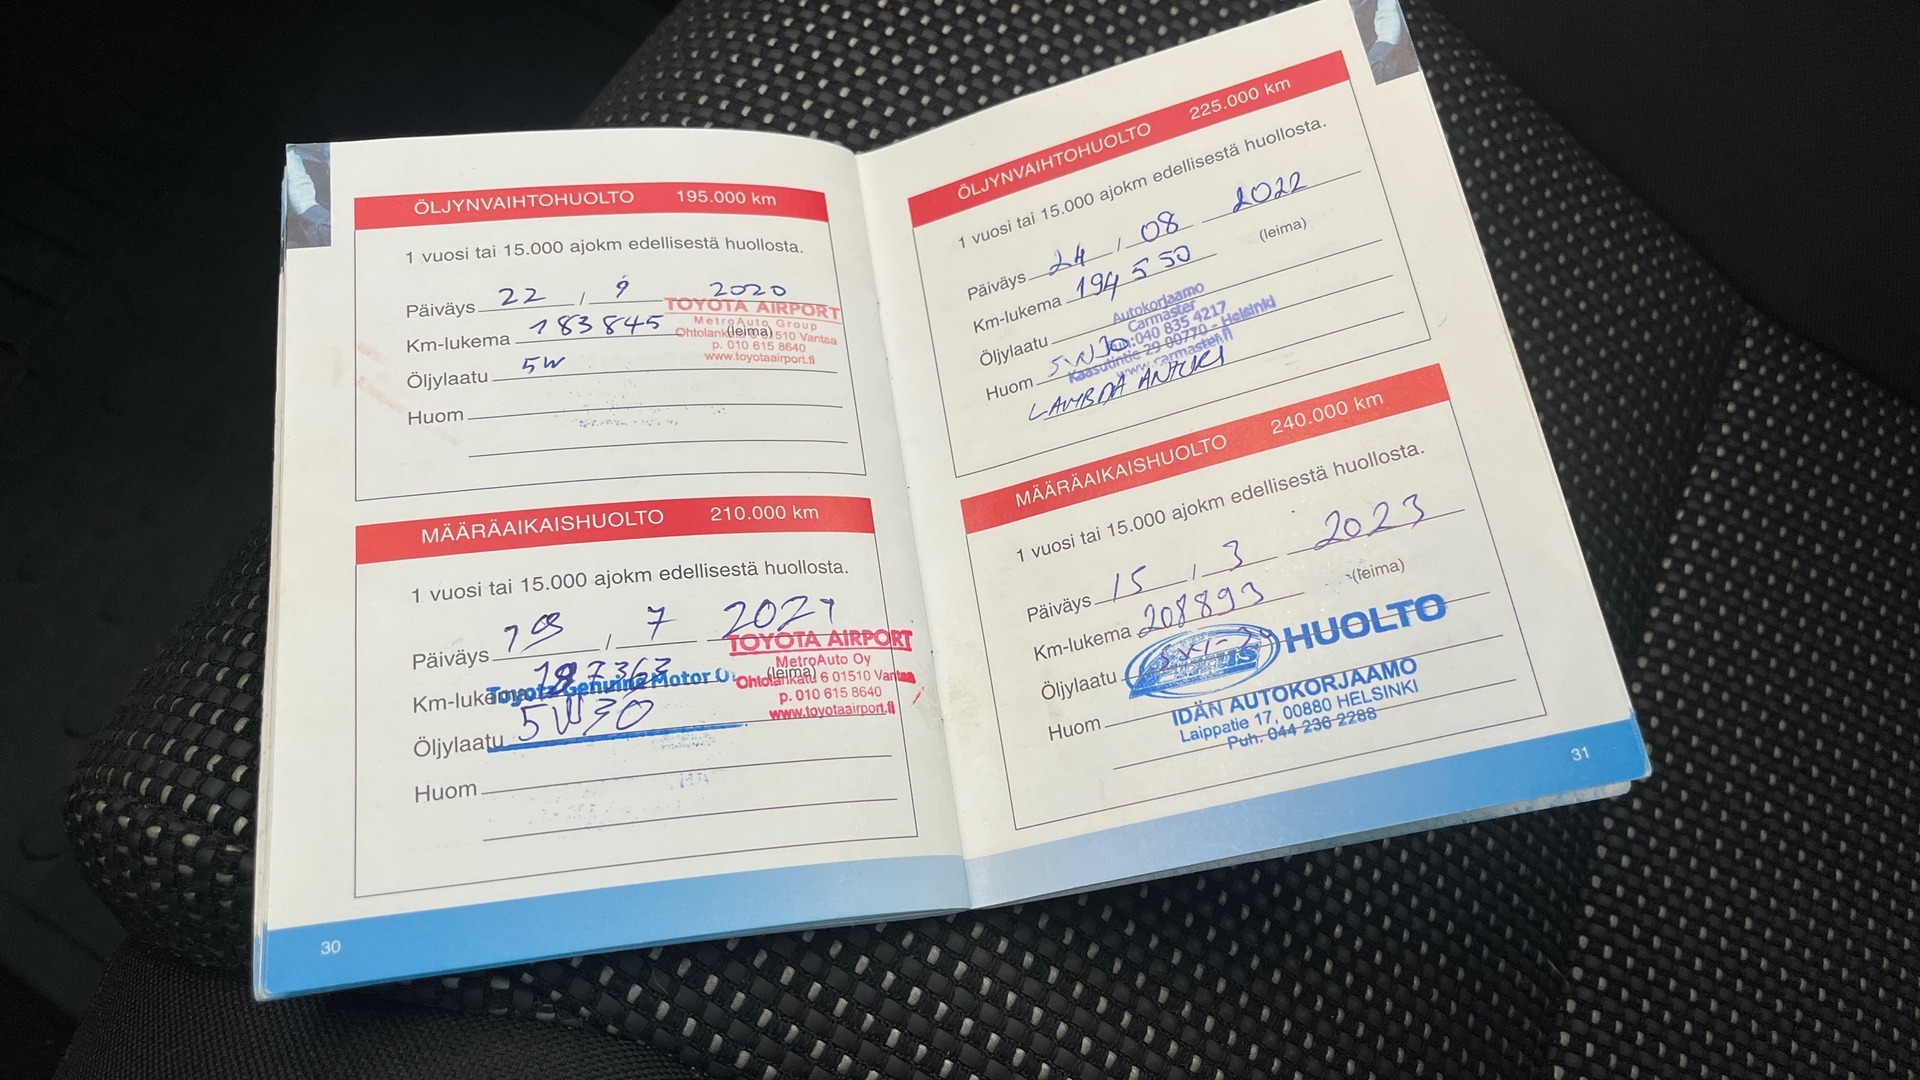 ÖLJYNVAIHTOHUOLTO 195.000 km
1 vuosi tai 15.000 ajokm edellisestä huollosta.
Päiväys 22 / 9 2020
TOYOTA AIRPORT
MetroAuto Group
Km-lukema 183845
(leima)
01510 Vantaa
p. 010 615 8640
www.toyotaairport.fi
Öljylaatu 5W
Huom
MÄÄRÄAIKAISHUOLTO 210.000 km
1 vuosi tai 15.000 ajokm edellisestä huollosta.
Päiväys 19 / 7 2021
TOYOTA AIRPORT
MetroAuto Oy
Km-lukema 187363
Toyota Genuine Motor
(leima)
Ohtolankatu 6 01510 Vantaa
p. 010 615 8640
www.toyotaairport.fi
Öljylaatu 5W30
Huom
30
ÖLJYNVAIHTOHUOLTO 225.000 km
1 vuosi tai 15.000 ajokm edellisestä huollosta.
Päiväys 24 / 08 2022
Km-lukema 194550
(leima)
Autokorjaamo
Carmaster
040 835 4217
Kaasutintie 29 00770 - Helsinki
www.carmaster.fi
Öljylaatu 5W30
Huom
LAMBDA ANTURI
MÄÄRÄAIKAISHUOLTO 240.000 km
1 vuosi tai 15.000 ajokm edellisestä huollosta.
Päiväys 15 / 3 2023
Km-lukema 208893
(leima)
Öljylaatu
HUOLTO
IDÄN AUTOKORJAAMO
Laippatie 17, 00880 HELSINKI
Puh. 044 236 2288
Huom
31